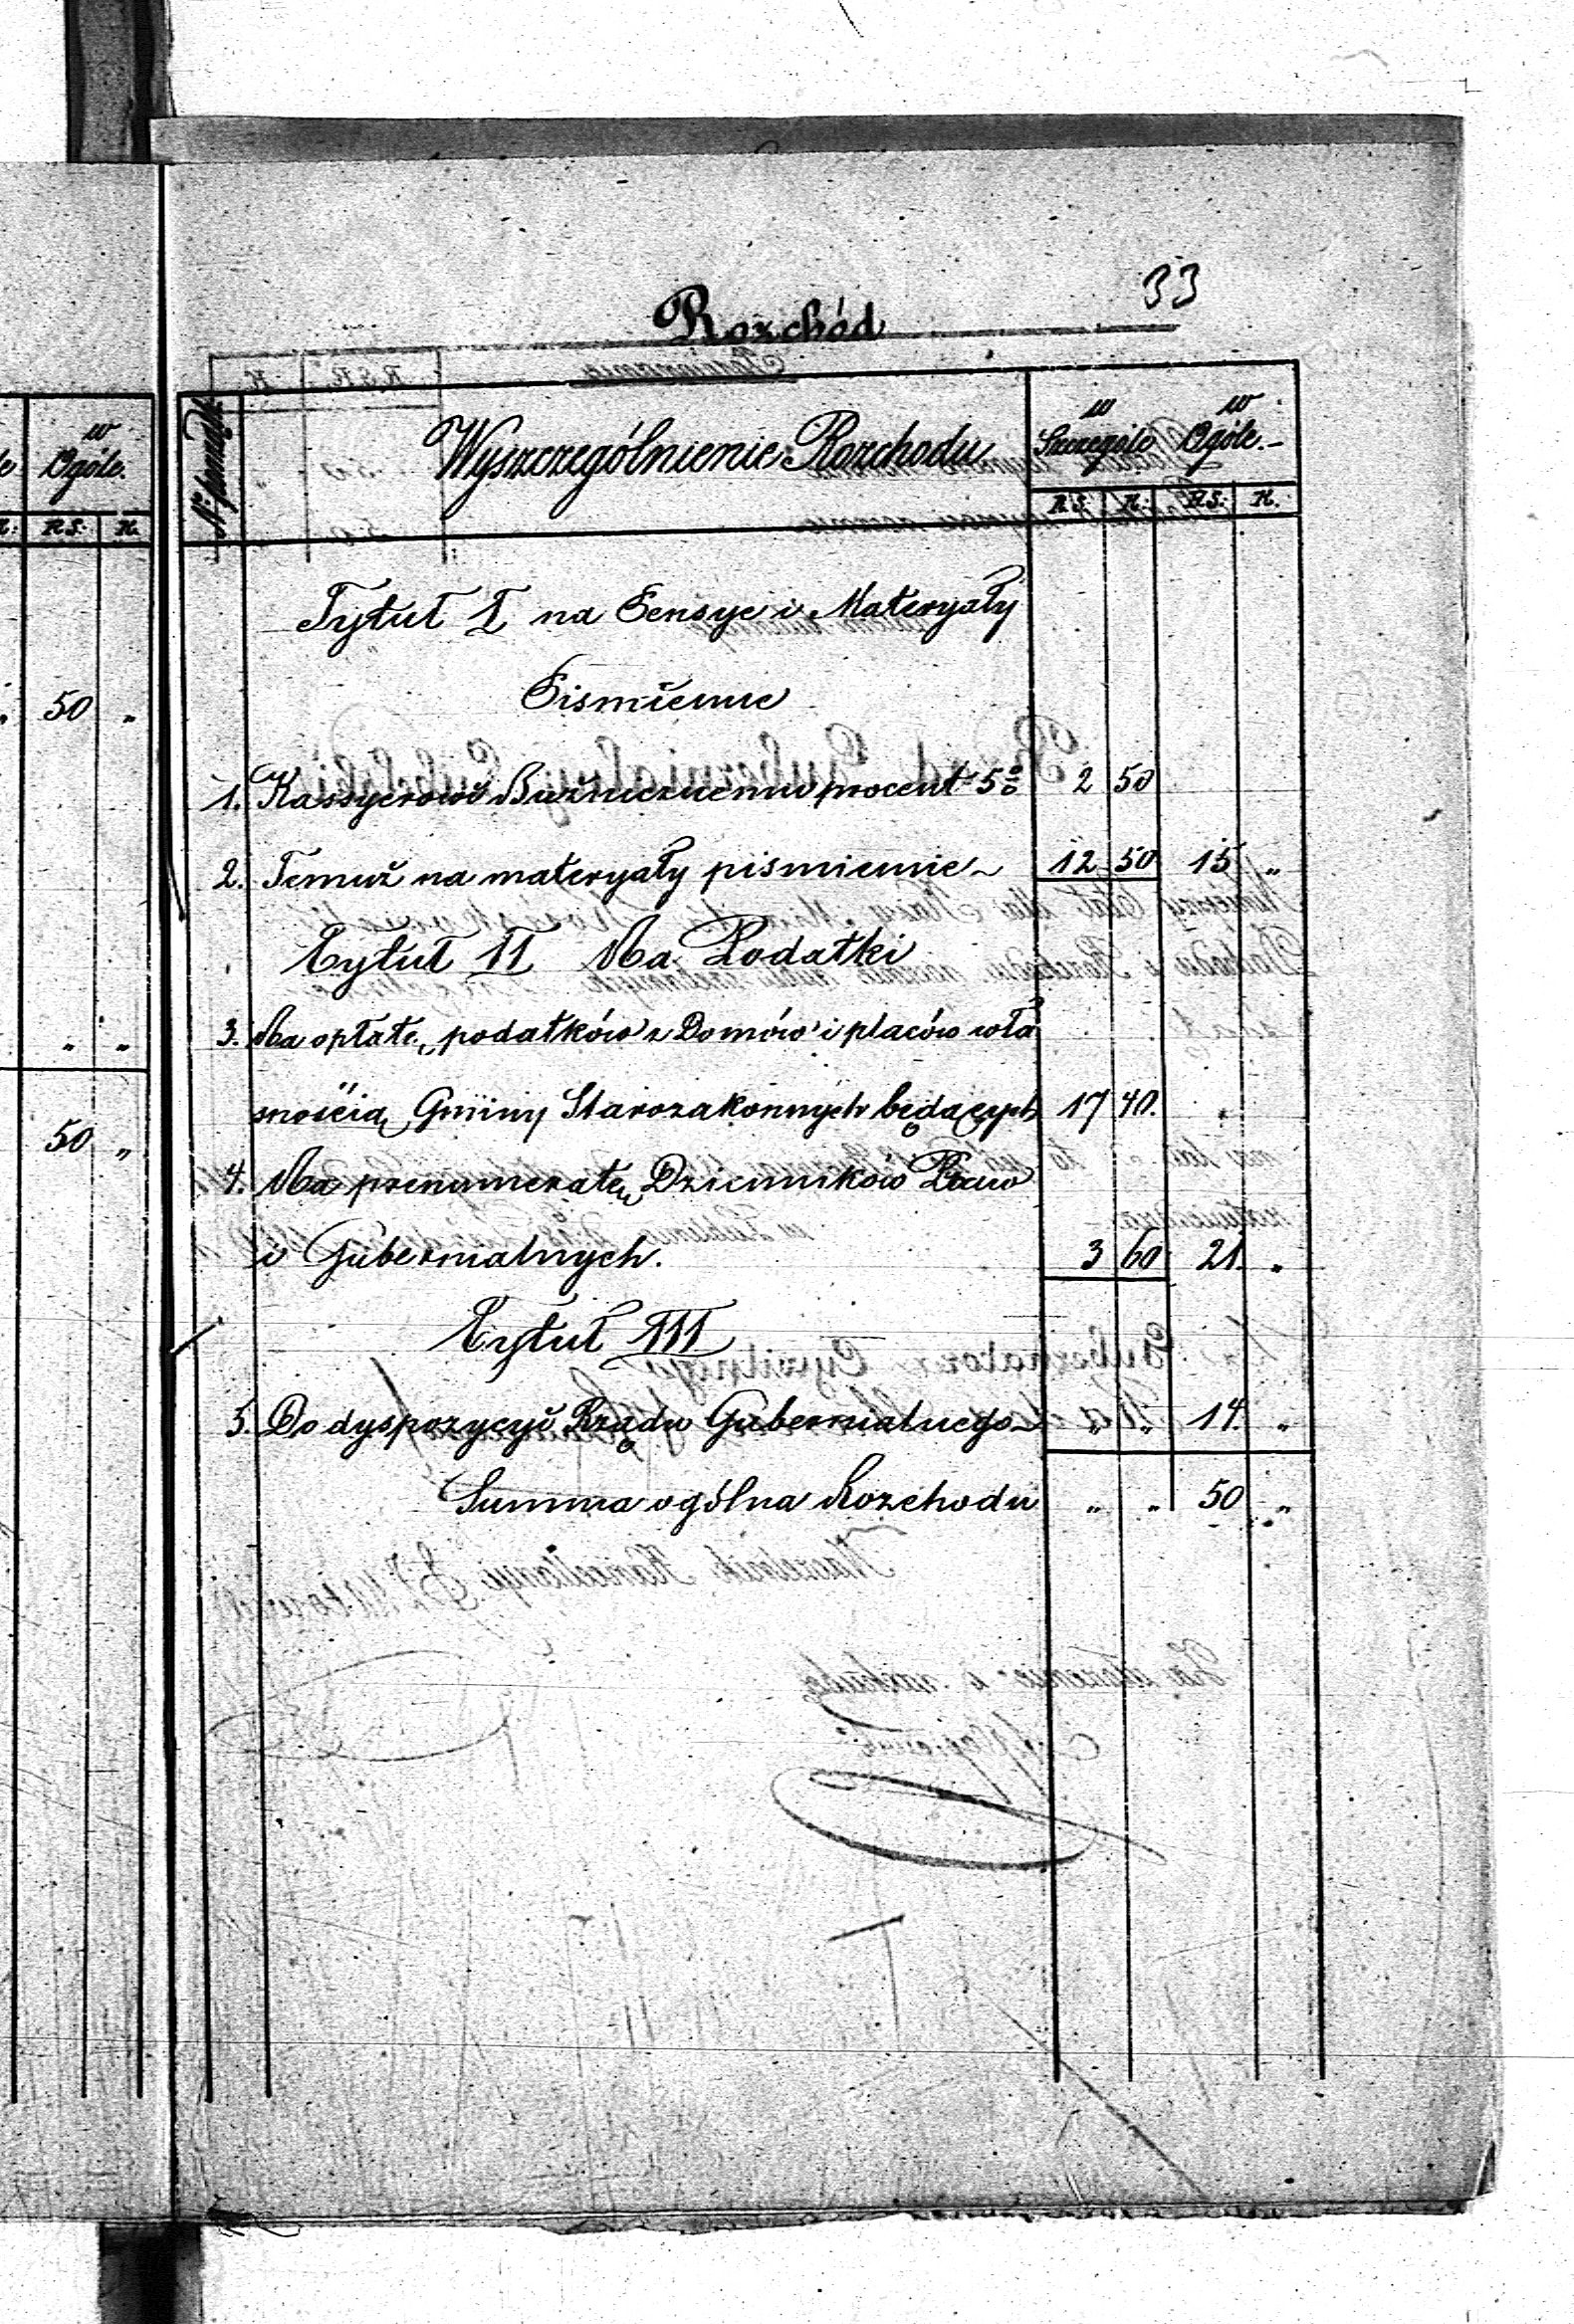 33
Rozchód
№ porządk.
Wyszczególnienie Rozchodu
w Szczególe
w Ogóle.
R.S. K. R.S. K.
w Ogóle.
R.S. K.
Tytuł I na Pensye i Materyały
Piśmienne
50 „
1. Kassyerowi Bużniczнemu procent 5% 2 50
2. Temuż na materyały piśmienne 12 50 15 „
Tytuł II Na Podatki
3. Na opłatę podatków z Domów i placów wła
„ „
snością Gminy Starozakonnych będących 17 40. „
50 „
4. Na prenumeratę Dzienników Praw
i Gubernialnych. 3 60 21. „
Tytuł III
5. Do dyspozycyi Rządu Gubernialnego „ „ 14. „
Summa ogólna Rozchodu „ „ 50 „